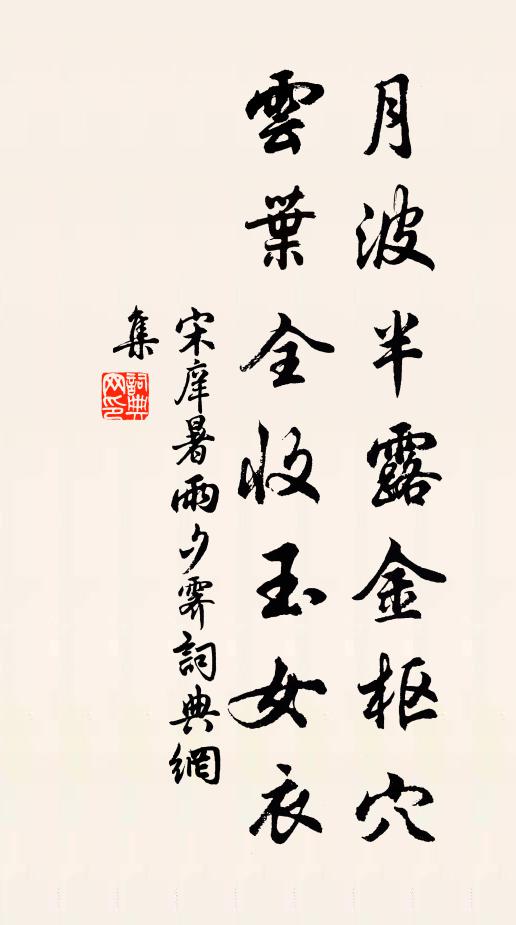 月波半露金枢穴
雲葉全收玉女衣
宋庠暑雨夕霽詞典網
集
詞典
网印